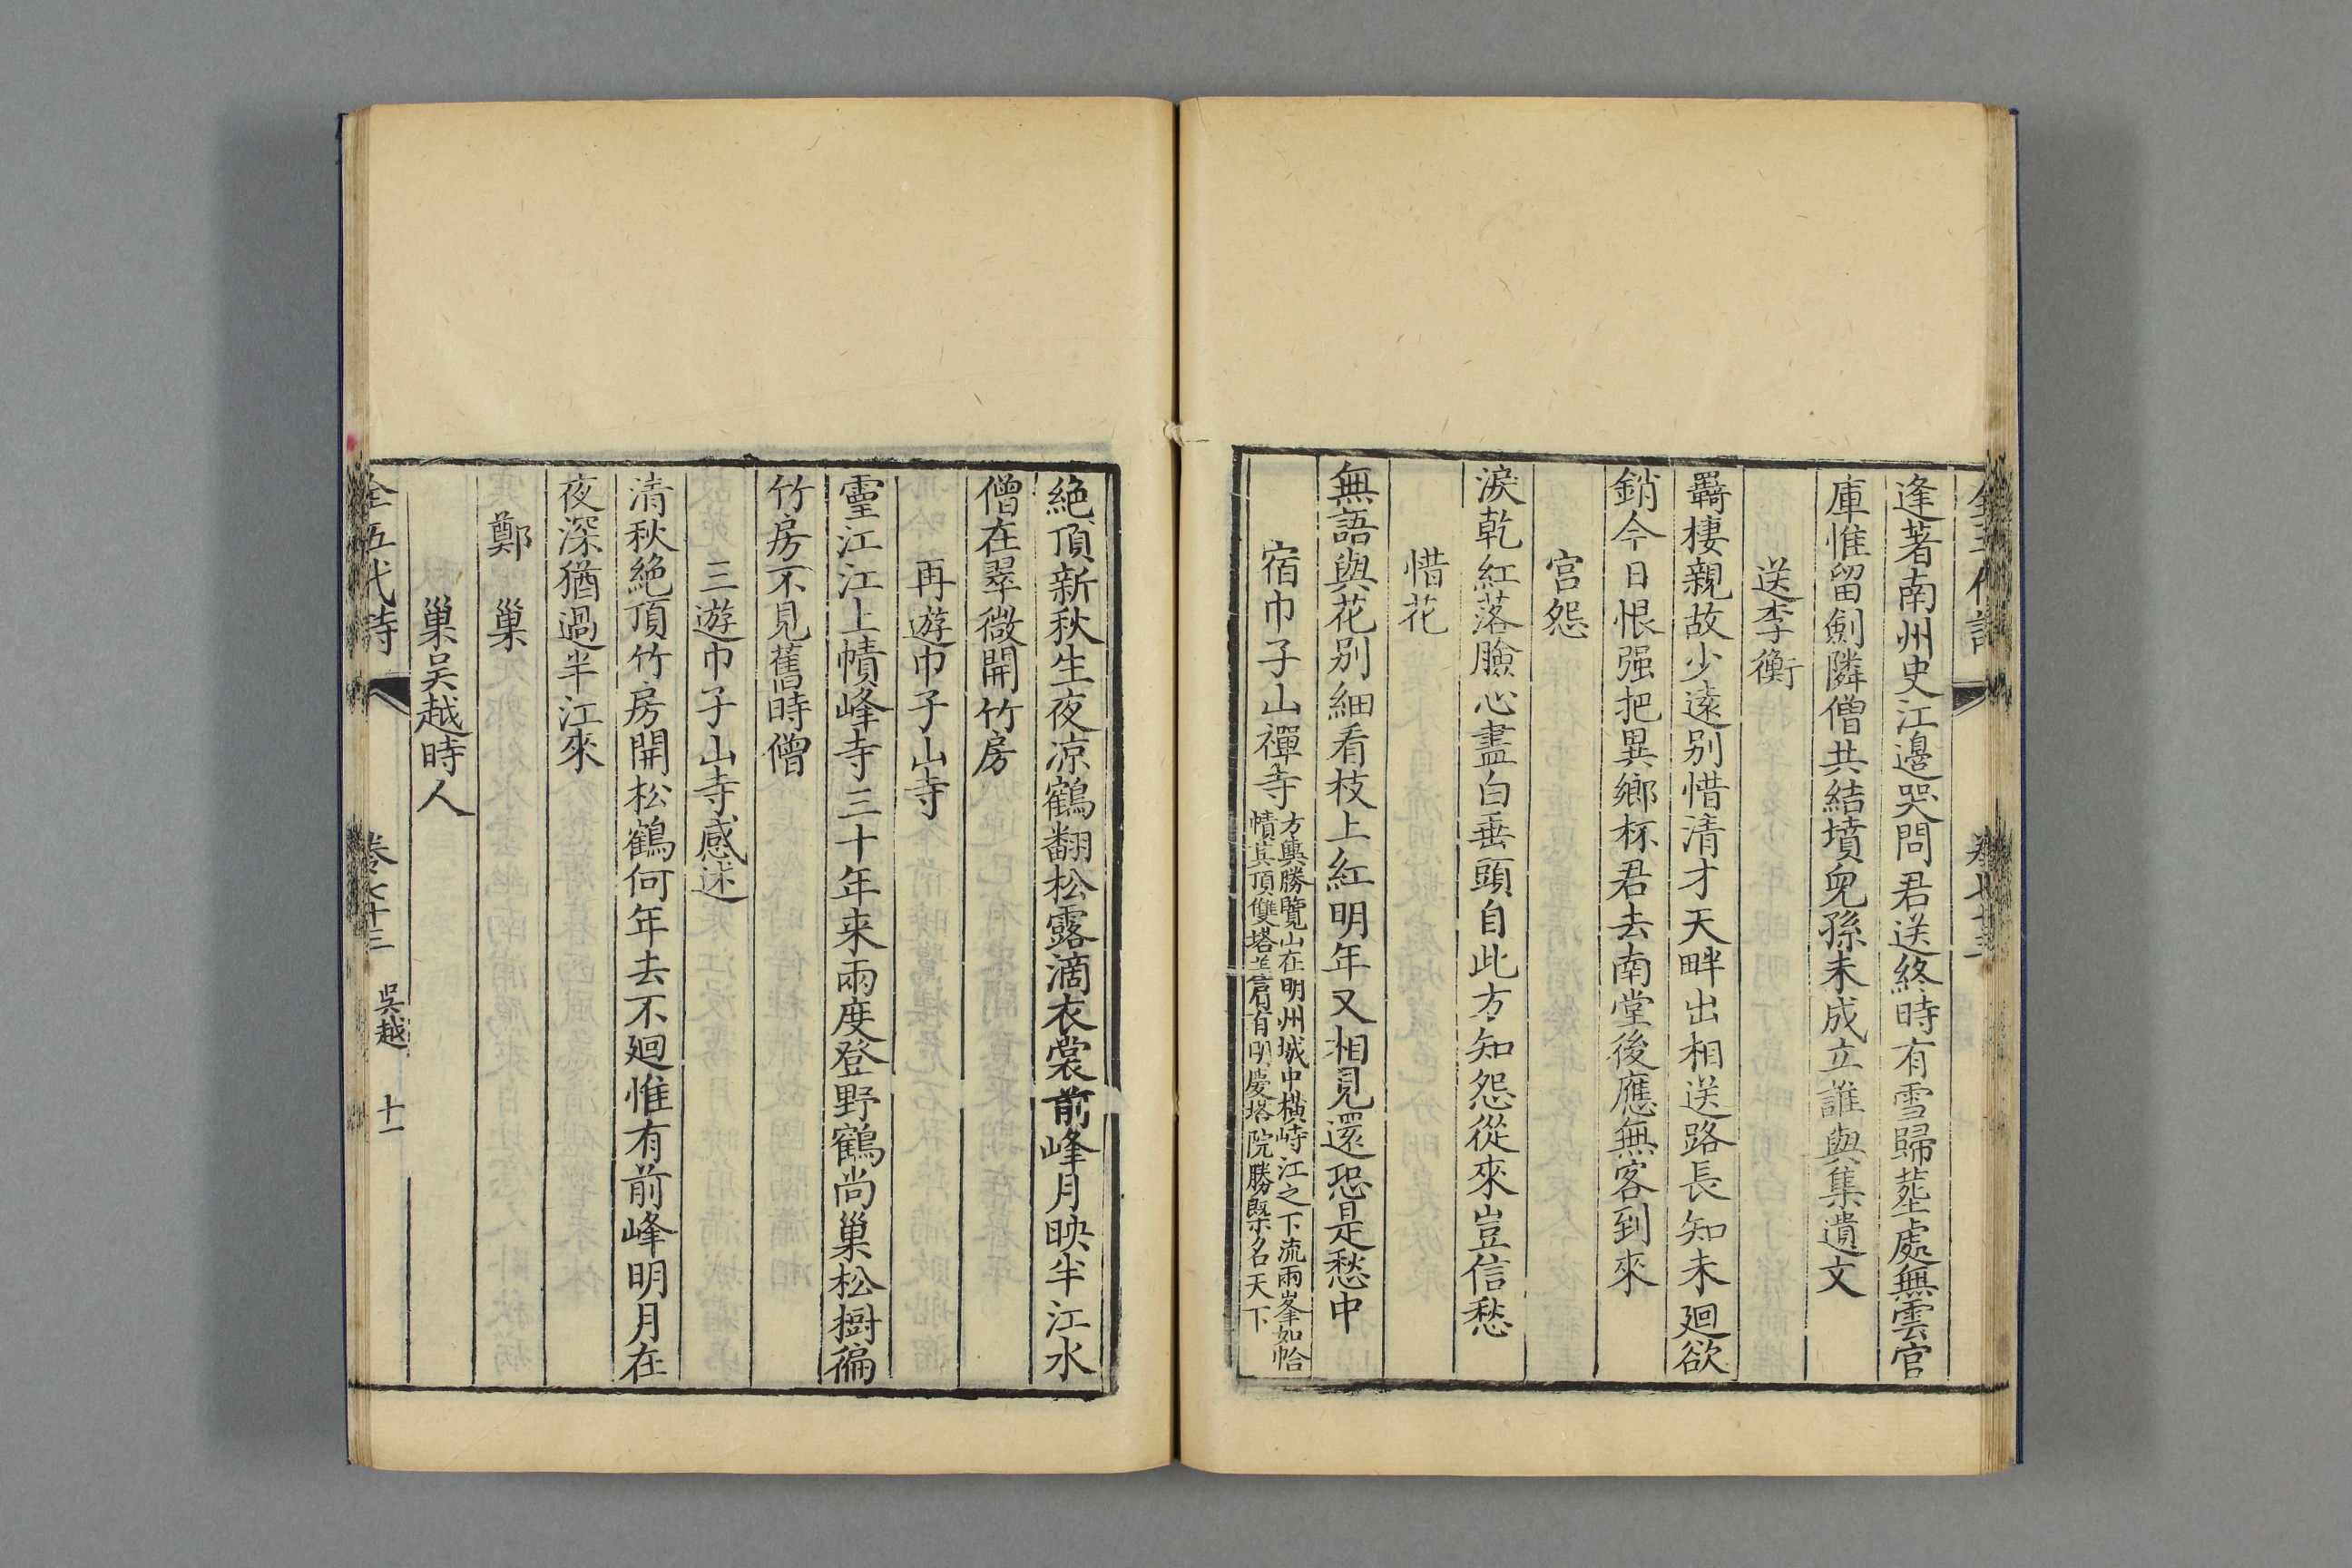 逢著南州史江邊哭問君送終時有雪歸葬處無雲官
庫惟留劍隣僧共結墳兒孫未成立誰與集遺文
送李衡
羇棲親故少遠别惜清才天畔出相送路長知未廻欲
銷今日恨强把異鄉杯君去南堂後應無客到來
宫怨
淚乾紅落臉心盡白垂頭自此方知怨從來豈信愁
惜花
無語與花别細看枝上紅明年又相見還恐是愁中
宿巾子山禪寺
方輿勝覽山在明州城中横峙江之下流兩峯如帢
幘其頂雙塔差肩有明慶塔院勝槩名天下
絶頂新秋生夜凉鶴翻松露滴衣裳前峰月映半江水
僧在翠微開竹房
再遊巾子山寺
靈江江上幘峰寺三十年来兩度登野鶴尚巢松樹徧
竹房不見舊時僧
三遊巾子山寺感述
清秋絶頂竹房開松鶴何年去不廻惟有前峰明月在
夜深猶過半江來
鄭巢
巢吴越時人
全五代詩 卷七十三 吳越 十一